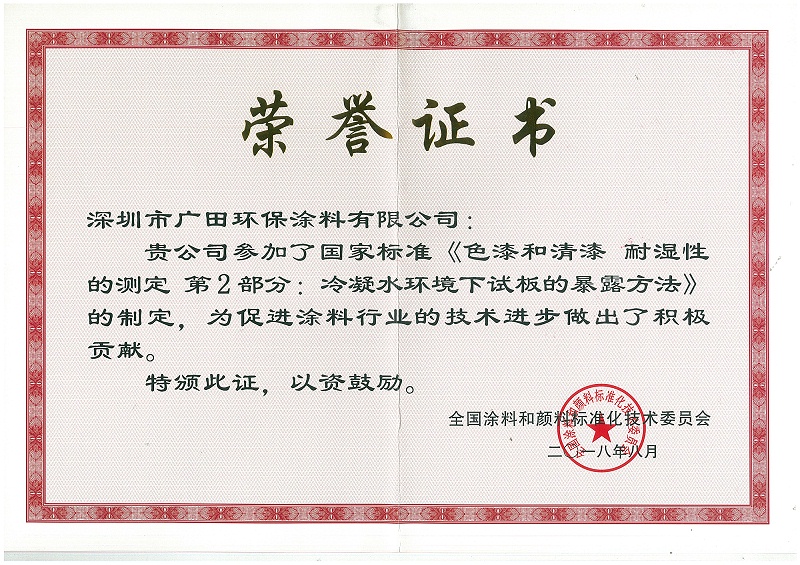 荣誉证书
深圳市广田环保涂料有限公司：
贵公司参加了国家标准《色漆和清漆 耐湿性
的测定 第2部分：冷凝水环境下试板的暴露方法》
的制定，为促进涂料行业的技术进步做出了积极
贡献。
特颁此证，以资鼓励。
全国涂料和颜料标准化技术委员会
二〇一八年八月
全国涂料和颜料标准化技术委员会